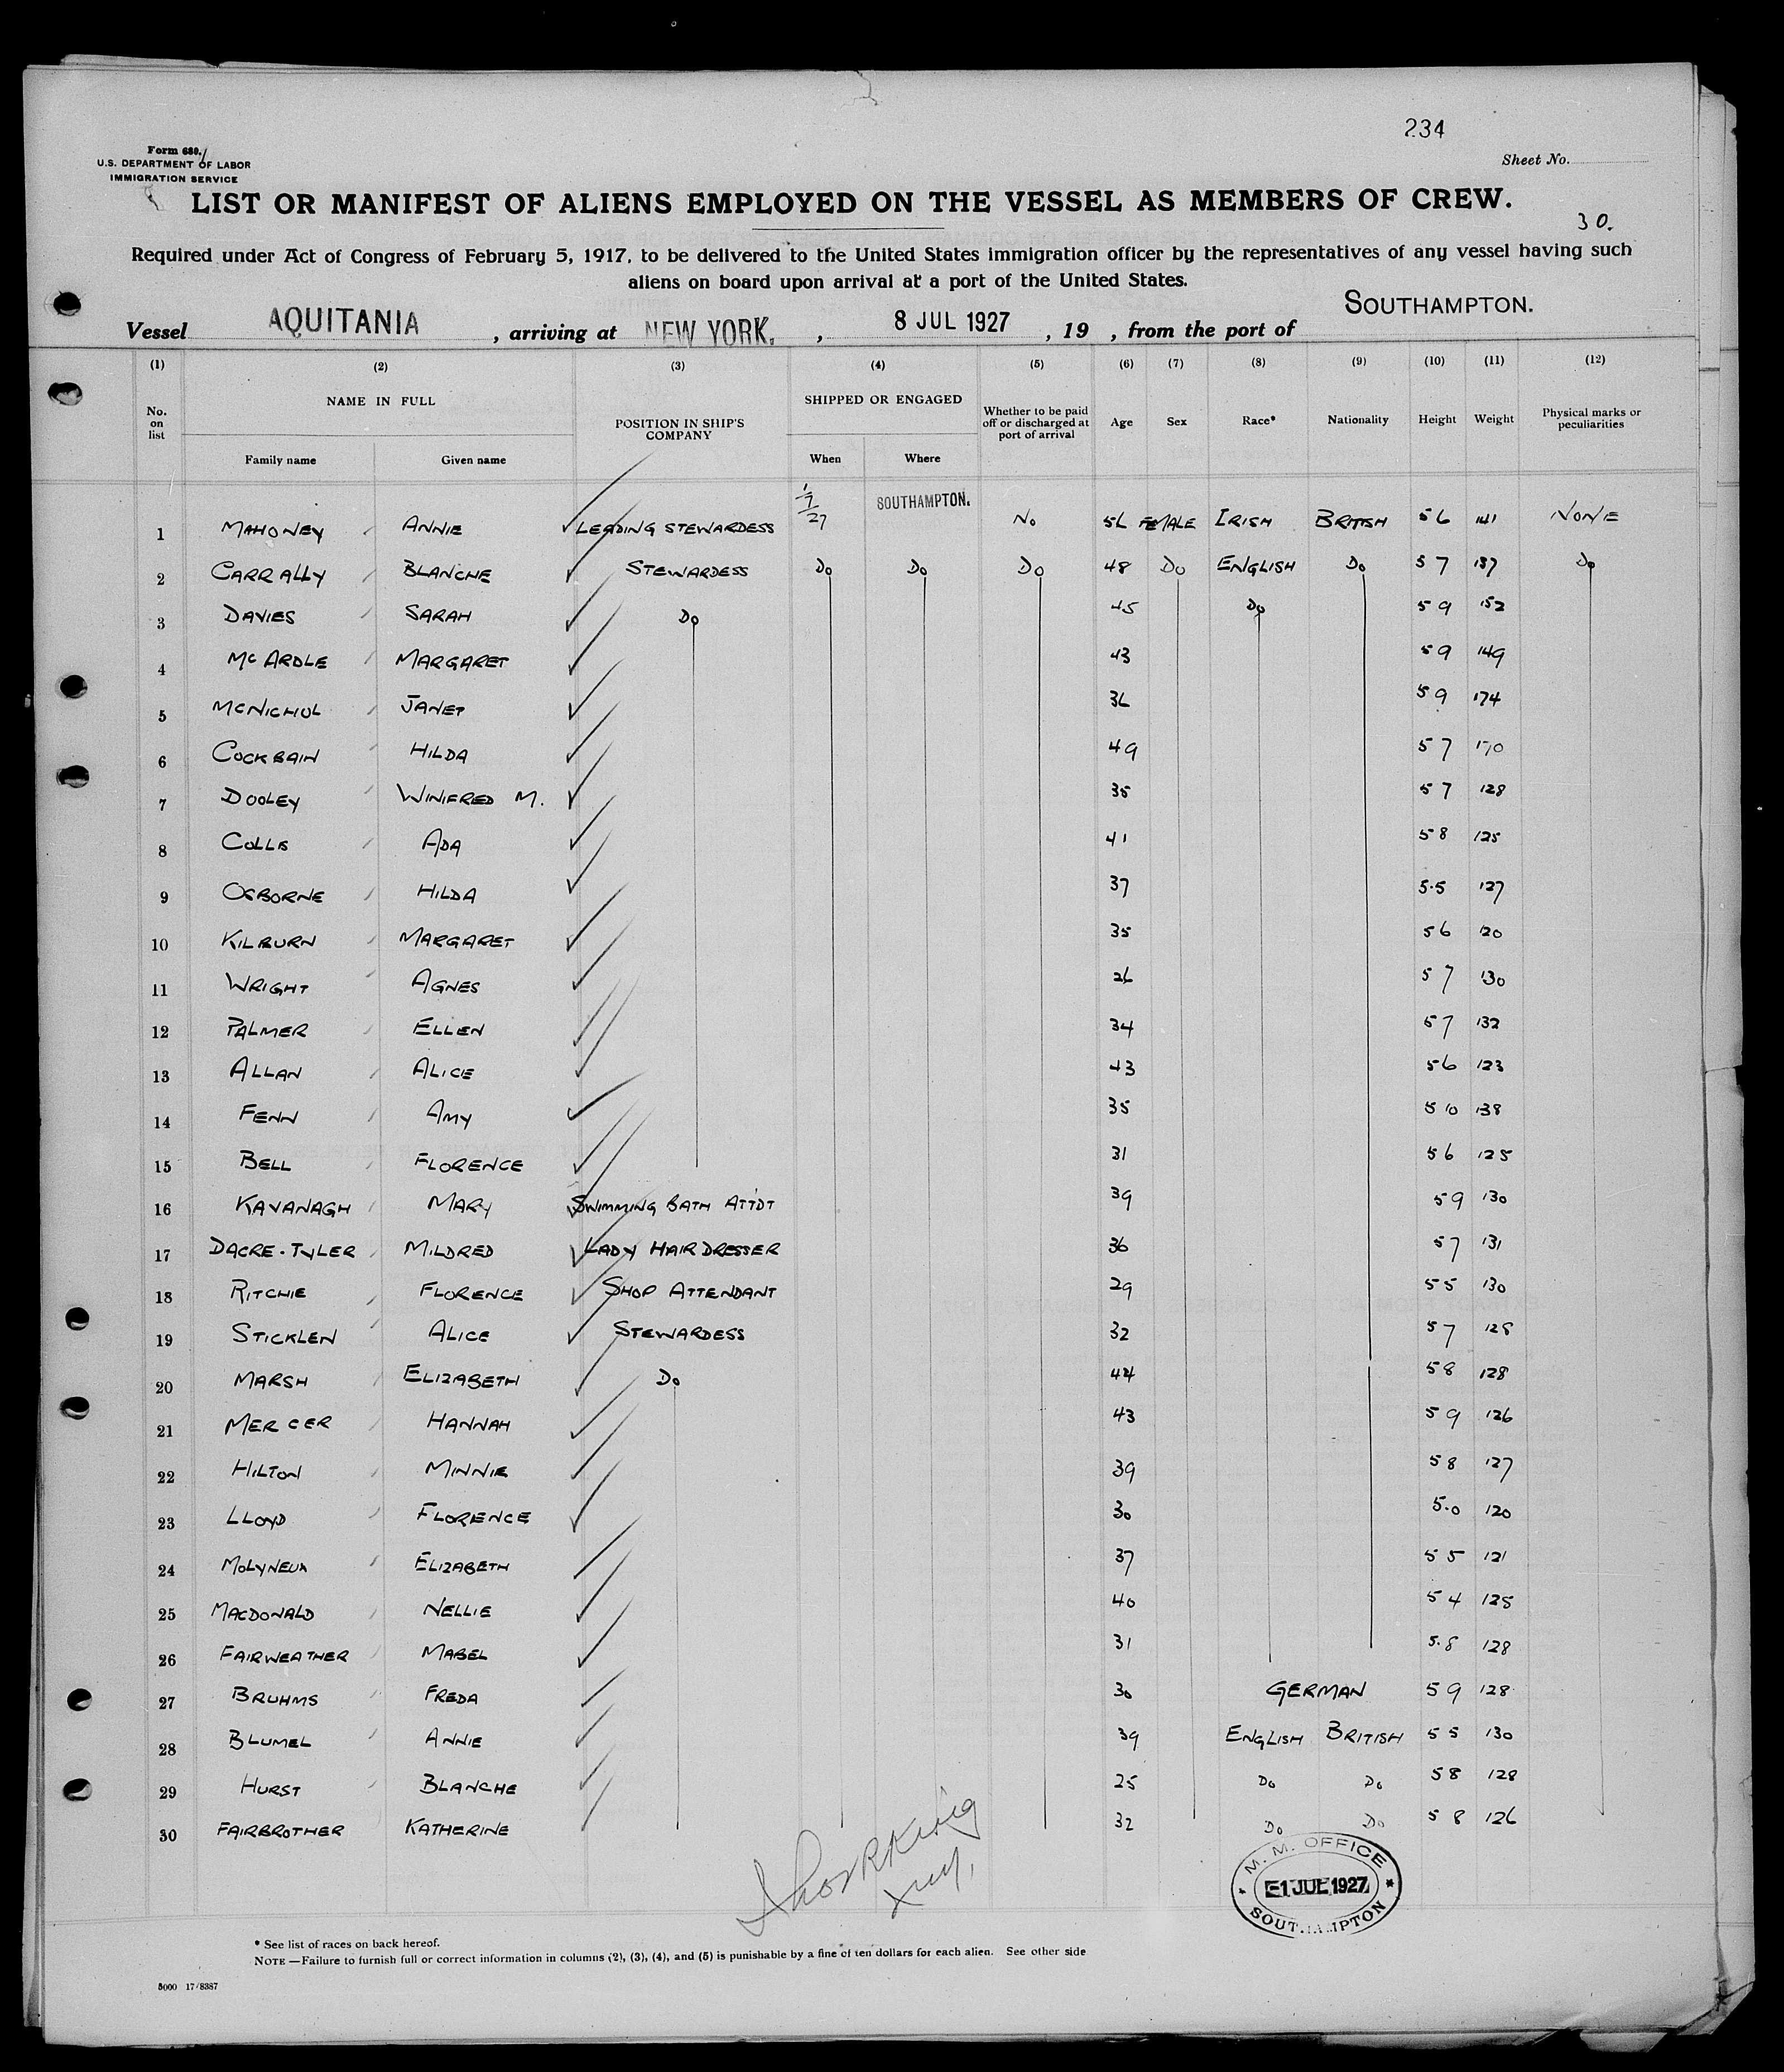 234
Form 680.
U.S. DEPARTMENT OF LABOR
IMMIGRATION SERVICE
Sheet No.
LIST OR MANIFEST OF ALIENS EMPLOYED ON THE VESSEL AS MEMBERS OF CREW.
30.
Required under Act of Congress of February 5, 1917, to be delivered to the United States immigration officer by the representatives of any vessel having such
aliens on board upon arrival at a port of the United States.
Vessel AQUITANIA, arriving at NEW YORK., 8 JUL 1927, 19 , from the port of SOUTHAMPTON.
(1) (2) (3) (4) (5) (6) (7) (8) (9) (10) (11) (12)
No. on list NAME IN FULL POSITION IN SHIP'S COMPANY SHIPPED OR ENGAGED Whether to be paid off or discharged at port of arrival Age Sex Race* Nationality Height Weight Physical marks or peculiarities
Family name Given name When Where
1 MAHONEY ANNIE LEADING STEWARDESS 1/7/27 SOUTHAMPTON. No 56 FEMALE IRISH BRITISH 5 6 141 NONE
2 CARRALLY BLANCHE STEWARDESS Do Do Do 48 Do ENGLISH Do 5 7 137 Do
3 DAVIES SARAH Do 45 Do 5 9 152
4 McARDLE MARGARET 43 5 9 149
5 McNICHOL JANET 36 5 9 174
6 COCKBAIN HILDA 49 5 7 170
7 DOOLEY WINIFRED M. 35 5 7 128
8 COLLS ADA 41 5 8 125
9 OSBORNE HILDA 37 5.5 127
10 KILBURN MARGARET 35 5 6 120
11 WRIGHT AGNES 26 5 7 130
12 PALMER ELLEN 34 5 7 132
13 ALLAN ALICE 43 5 6 123
14 FENN AMY 35 5 10 138
15 BELL FLORENCE 31 5 6 125
16 KAVANAGH MARY SWIMMING BATH ATTDT 39 5 9 130
17 DACRE-TYLER MILDRED LADY HAIRDRESSER 36 5 7 131
18 RITCHIE FLORENCE SHOP ATTENDANT 29 5 5 130
19 STICKLEN ALICE STEWARDESS 32 5 7 128
20 MARSH ELIZABETH Do 44 5 8 128
21 MERCER HANNAH 43 5 9 126
22 HILTON MINNIE 39 5 8 127
23 LLOYD FLORENCE 30 5.0 120
24 MOLYNEUX ELIZABETH 37 5 5 121
25 MACDONALD NELLIE 40 5 4 125
26 FAIRWEATHER MABEL 31 5.8 128
27 BRUHMS FREDA 30 GERMAN 5 9 128
28 BLUMEL ANNIE 39 ENGLISH BRITISH 5 5 130
29 HURST BLANCHE 25 Do Do 5 8 128
30 FAIRBROTHER KATHERINE 32 Do Do 5 8 126
M. M. OFFICE
1 JUL 1927
SOUTHAMPTON
* See list of races on back hereof.
NOTE —Failure to furnish full or correct information in columns (2), (3), (4), and (5) is punishable by a fine of ten dollars for each alien. See other side
5000 17/8387